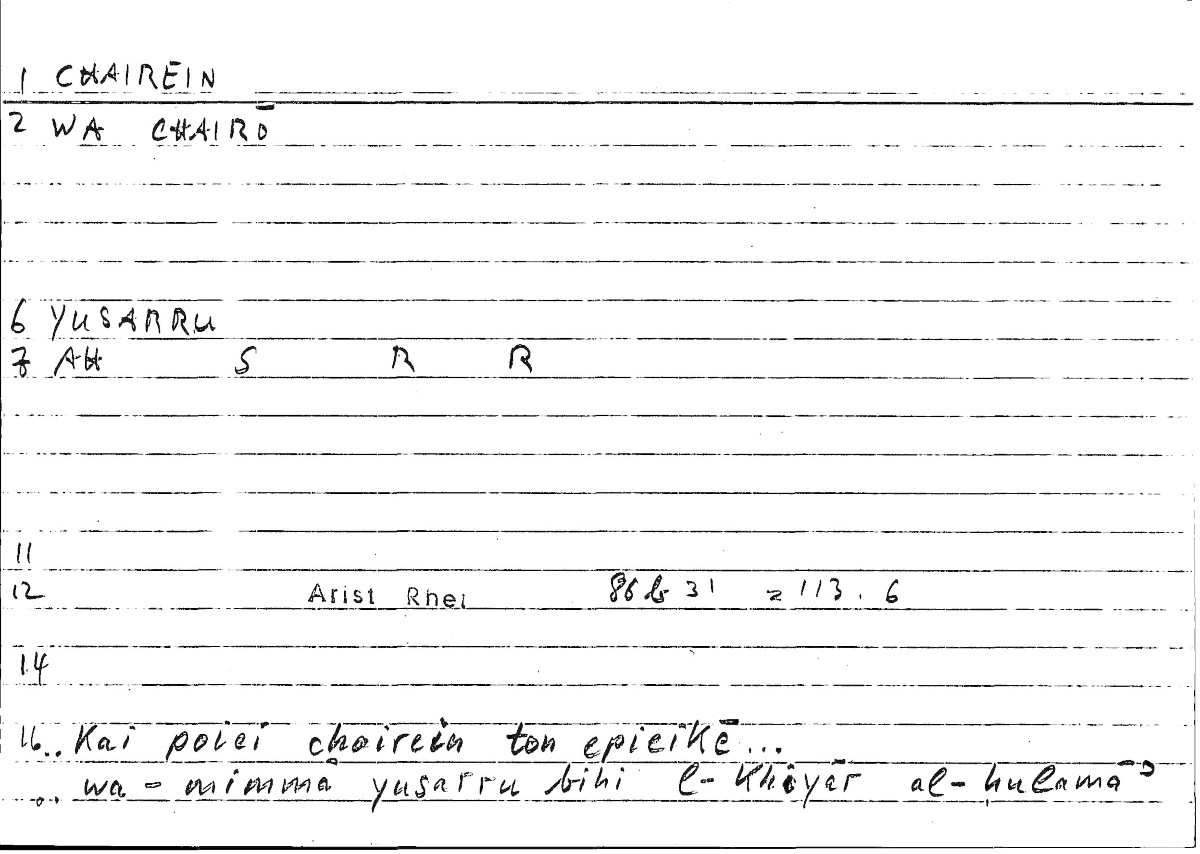 1 CHAIRĒIN
2 WA CHAIRŌ
6 YUSARRU
7 AH S R R
11
12 Arist Rhet 86 b 31 = 113.6
14
16.. Kai poiei chairein ton epieikē...
.. wa-mimmā yusarru bihi l-Khiyār al-ḥulamāʾ